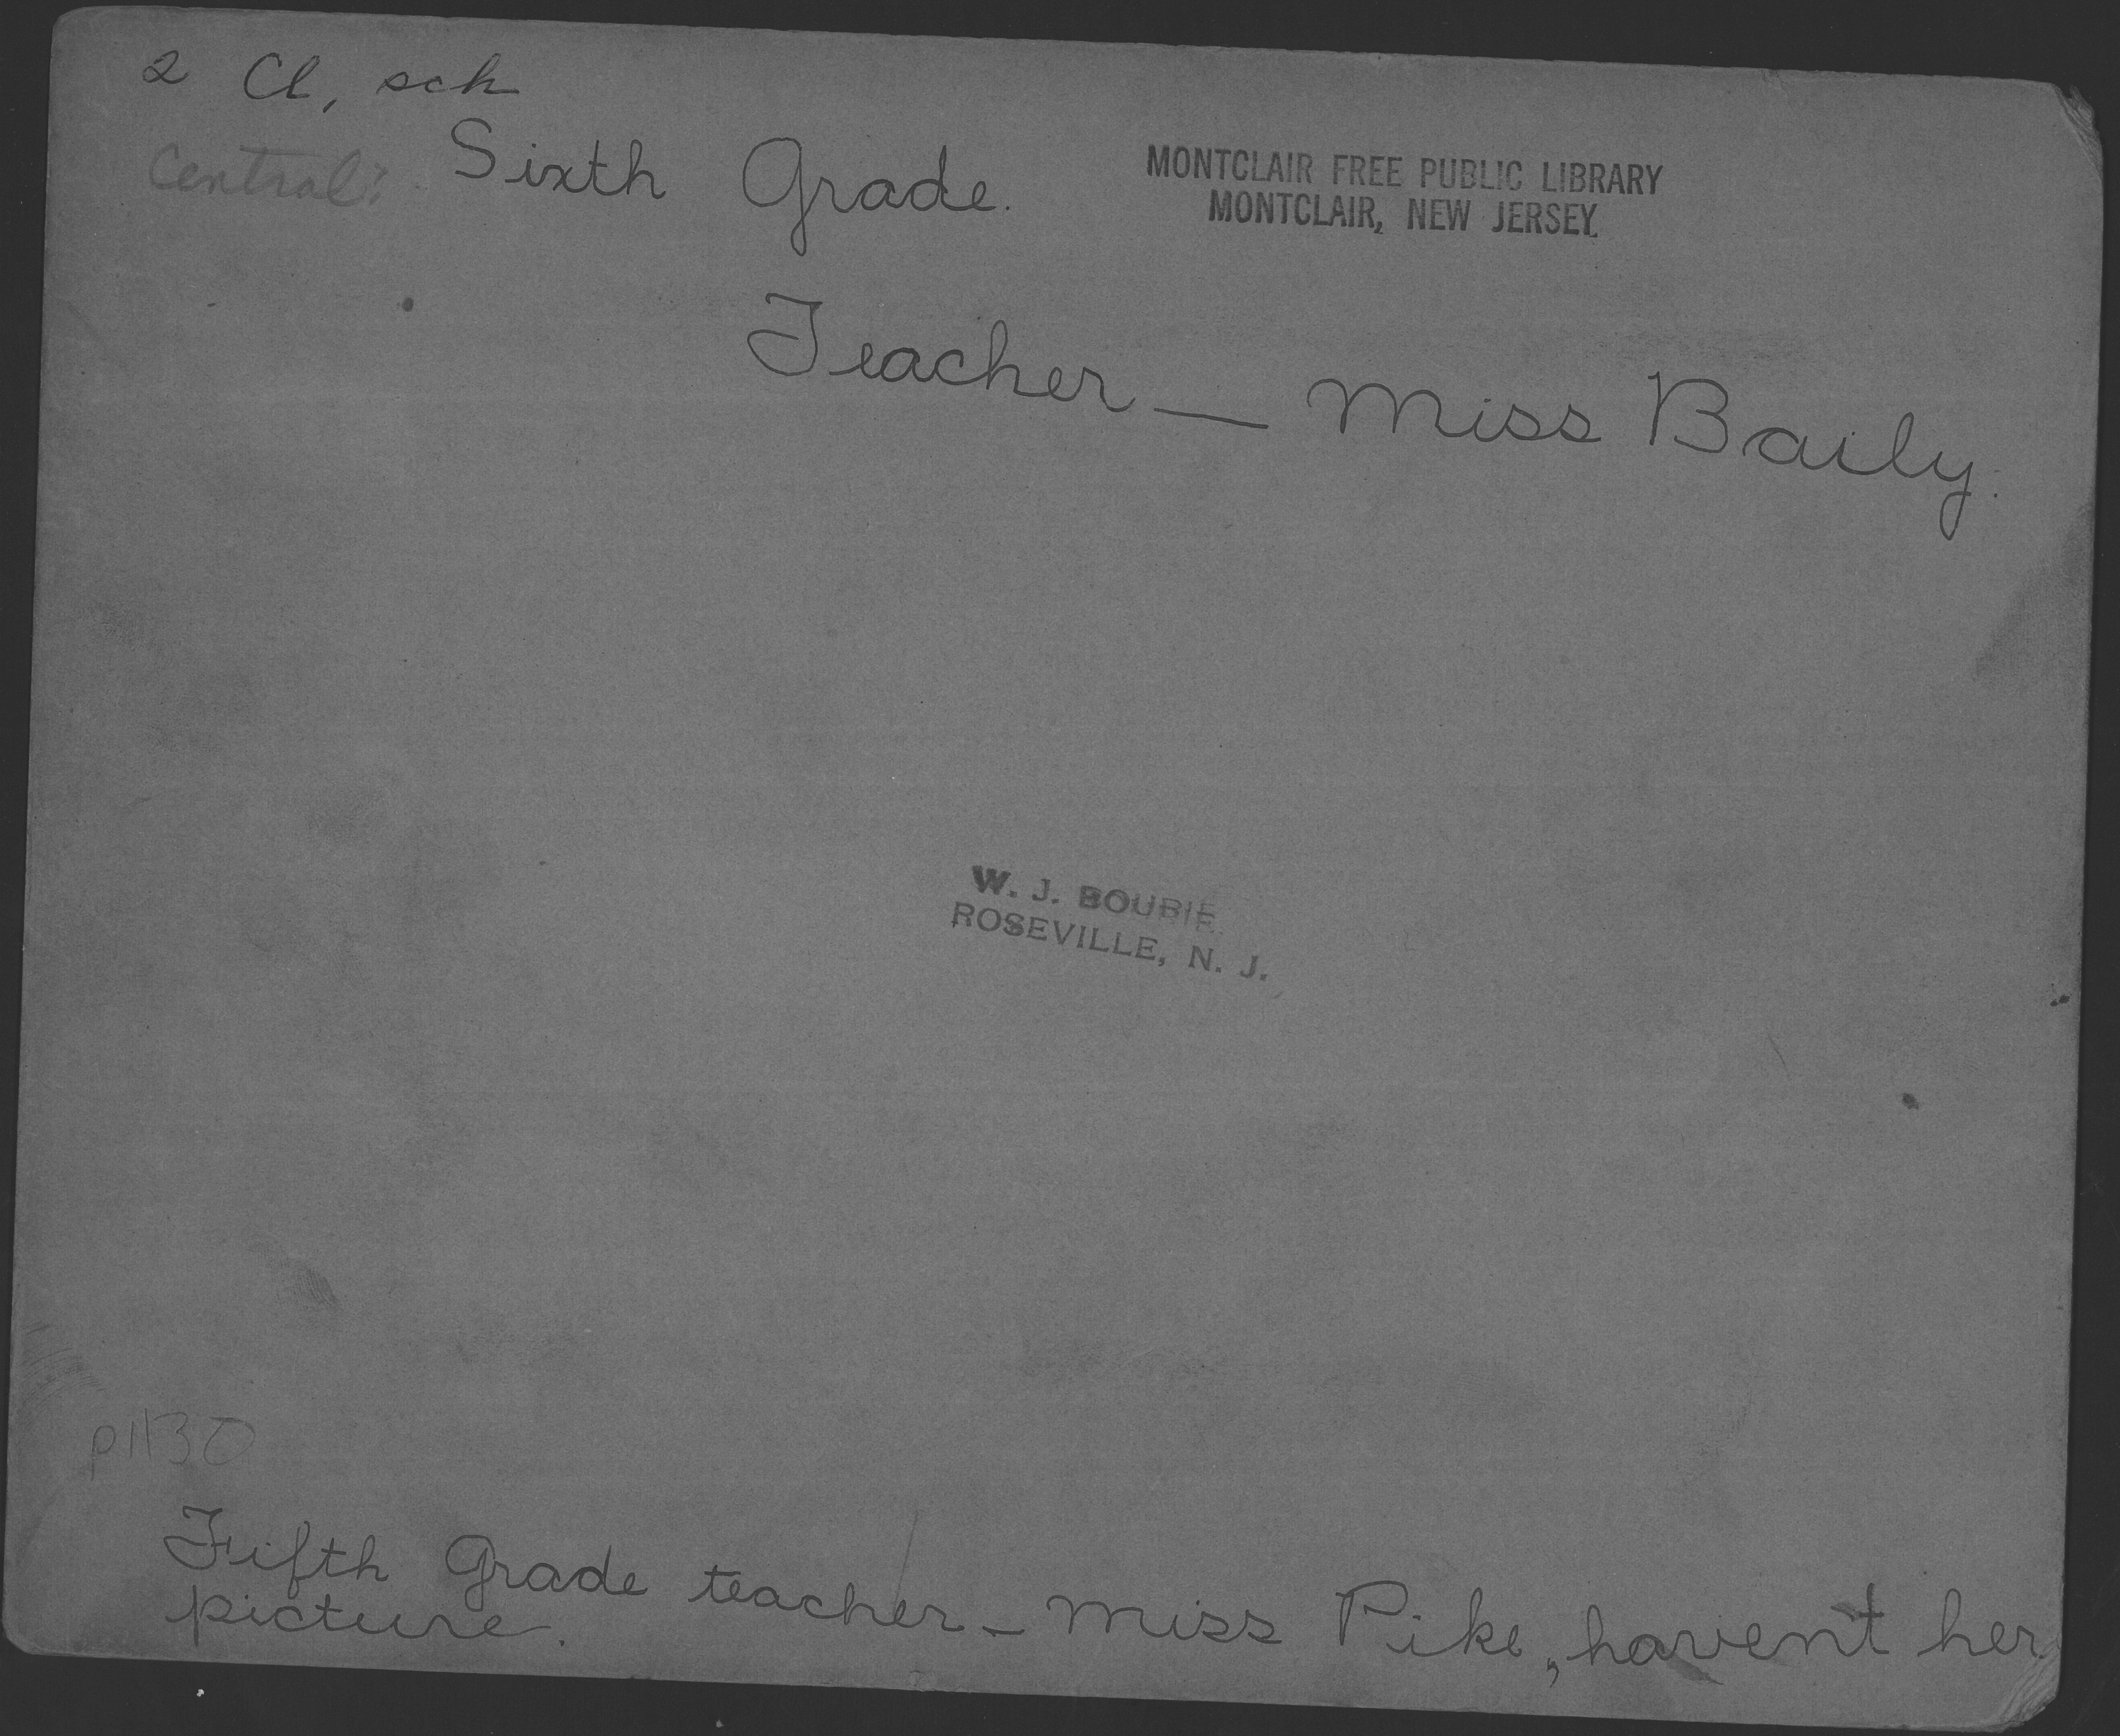 2 Cl, sch
Central: Sixth Grade.
MONTCLAIR FREE PUBLIC LIBRARY
MONTCLAIR, NEW JERSEY.
Teacher — Miss Baily.
W. J. BOURIE
ROSEVILLE, N. J.
p1130
Fifth Grade teacher - Miss Pike, haven't her
picture.